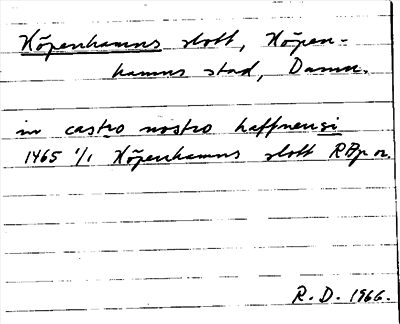 Köpenhamns slott, Köpen-
hamns stad, Danm.
in castro nostro haffnensi
1465 1/1 Köpenhamns slott RApr.
R. D. 1966.